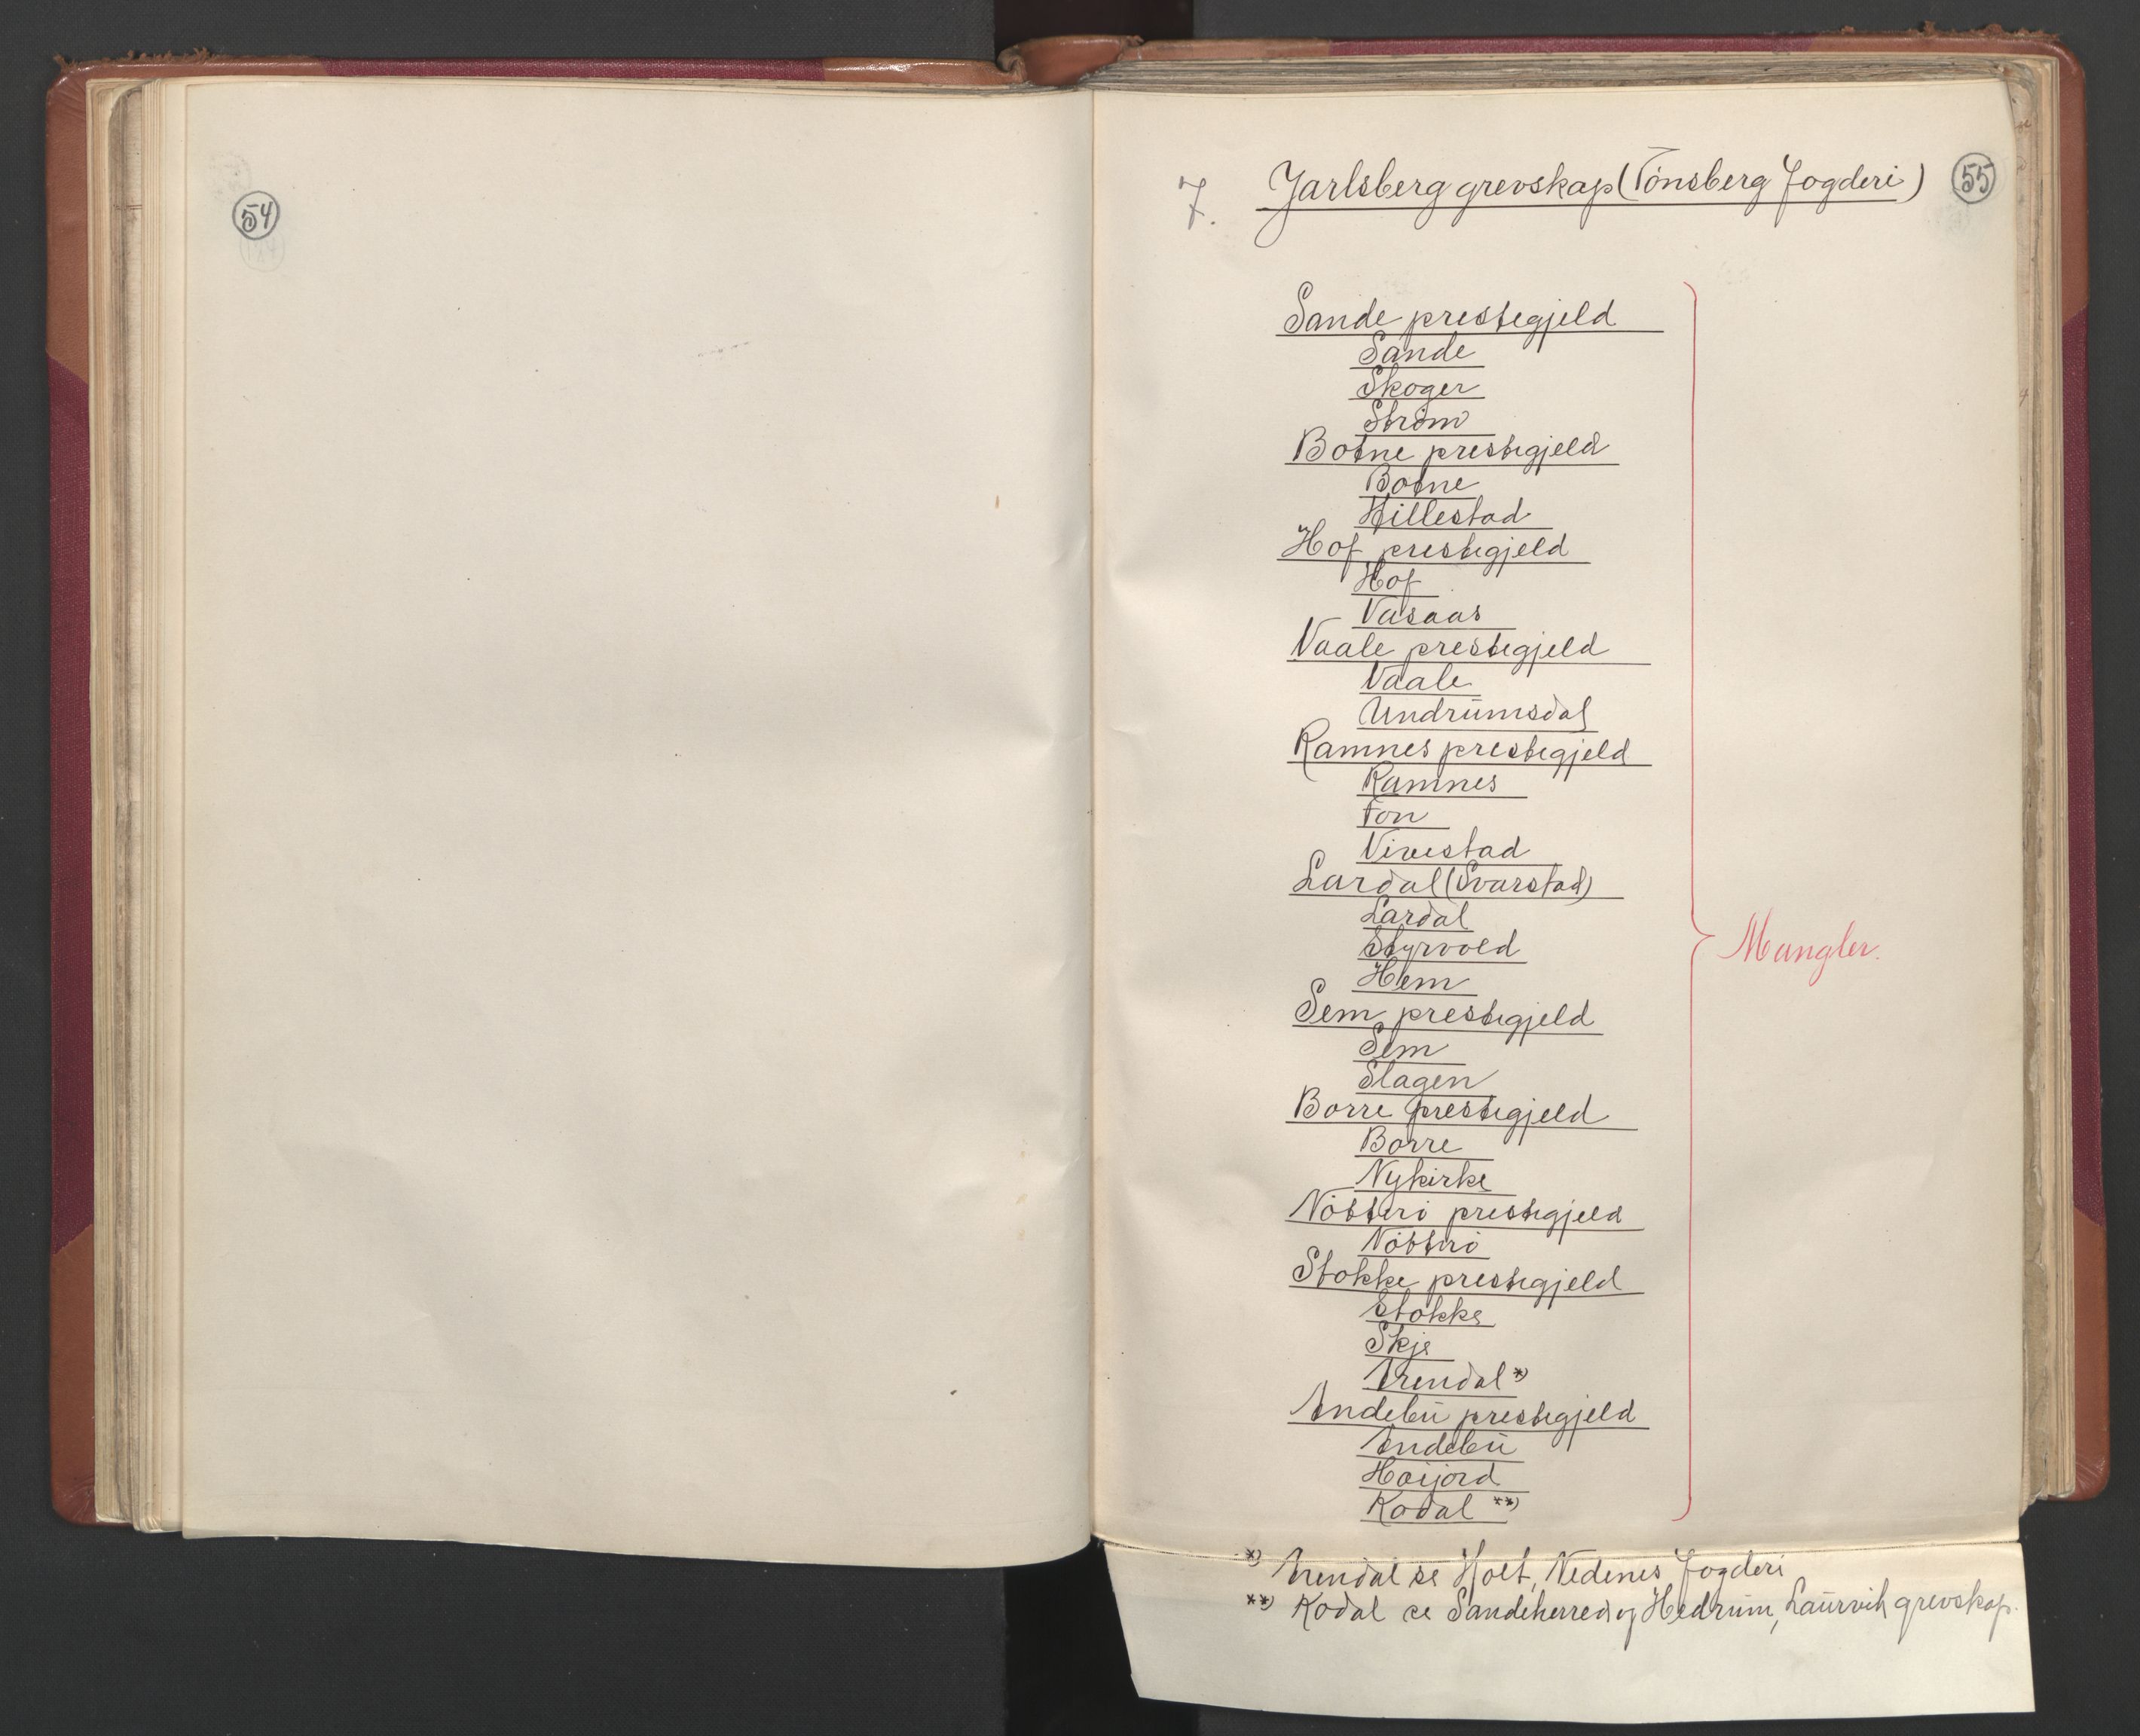 54
7.
Jarlsberg grevskap (Tönsberg Fogderi)
55
Sande prestegjeld
Sande
Skoger
Ström
Botne prestegjeld
Botne
Hillestad
Hof prestegjeld
Hof
Vasaas
Vaale prestegjeld
Vaale
Undrumsdal
Ramnes prestegjeld
Ramnes
Fon
Vivestad
Lardal (Svarstad)
Lardal
Styrvold
Hem
Mangler.
Sem prestegjeld
Sem
Slagen
Borre prestegjeld
Borre
Nykirke
Nötterö prestegjeld
Nötterö
Stokke prestegjeld
Stokke
Skje
Arendal *)
Andebu prestegjeld
Andebu
Höijord
Kodal **)
*) Arendal se Holt, Nedenes Fogderi
**) Kodal se Sandeherred og Hedrum, Laurvik grevskap.